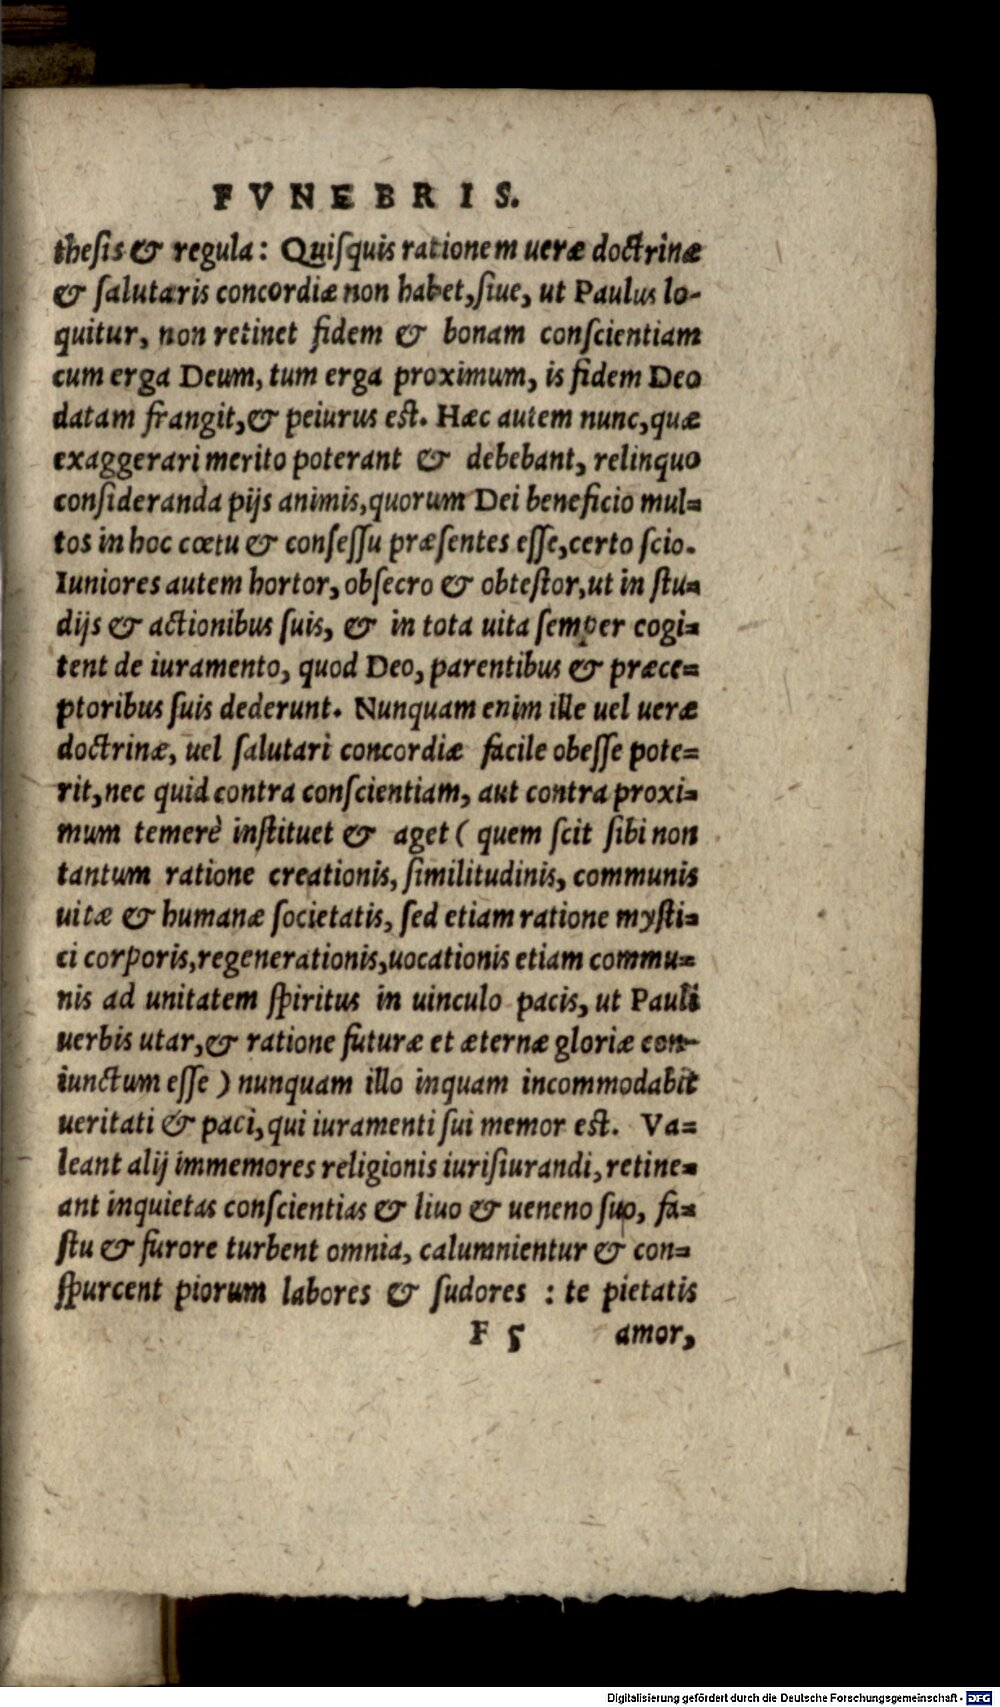 FVNEBRIS.
theſis & regula: Quiſquis rationem ueræ doctrinæ
& ſalutaris concordiæ non habet, ſiue, ut Paulus lo-
quitur, non retinet fidem & bonam conſcientiam
cum erga Deum, tum erga proximum, is fidem Deo
datam frangit, & peiurus est. Hæc autem nunc, quæ
exaggerari merito poterant & debebant, relinquo
conſideranda pijs animis, quorum Dei beneficio mul=
tos in hoc cœtu & conſeſſu præſentes eſſe, certo ſcio.
Iuniores autem hortor, obſecro & obteſtor, ut in ſtu=
dijs & actionibus ſuis, & in tota uita ſemper cogi=
tent de iuramento, quod Deo, parentibus & præce=
ptoribus ſuis dederunt. Nunquam enim ille uel ueræ
doctrinæ, uel ſalutari concordiæ facile obeſſe pote=
rit, nec quid contra conſcientiam, aut contra proxi=
mum temerè inſtituet & aget ( quem ſcit ſibi non
tantum ratione creationis, ſimilitudinis, communis
uitæ & humanæ ſocietatis, ſed etiam ratione myſti=
ci corporis, regenerationis, uocationis etiam commu=
nis ad unitatem ſpiritus in uinculo pacis, ut Pauli
uerbis utar, & ratione futuræ et æternæ gloriæ con-
iunctum eſſe ) nunquam illo inquam incommodabit
ueritati & paci, qui iuramenti ſui memor est. Va=
leant alij immemores religionis iuriſiurandi, retine=
ant inquietas conſcientias & liuo & ueneno ſuo, fa=
ſtu & furore turbent omnia, calumnientur & con=
ſpurcent piorum labores & ſudores : te pietatis
F 5 amor,
Digitalisierung gefördert durch die Deutsche Forschungsgemeinschaft - DFG